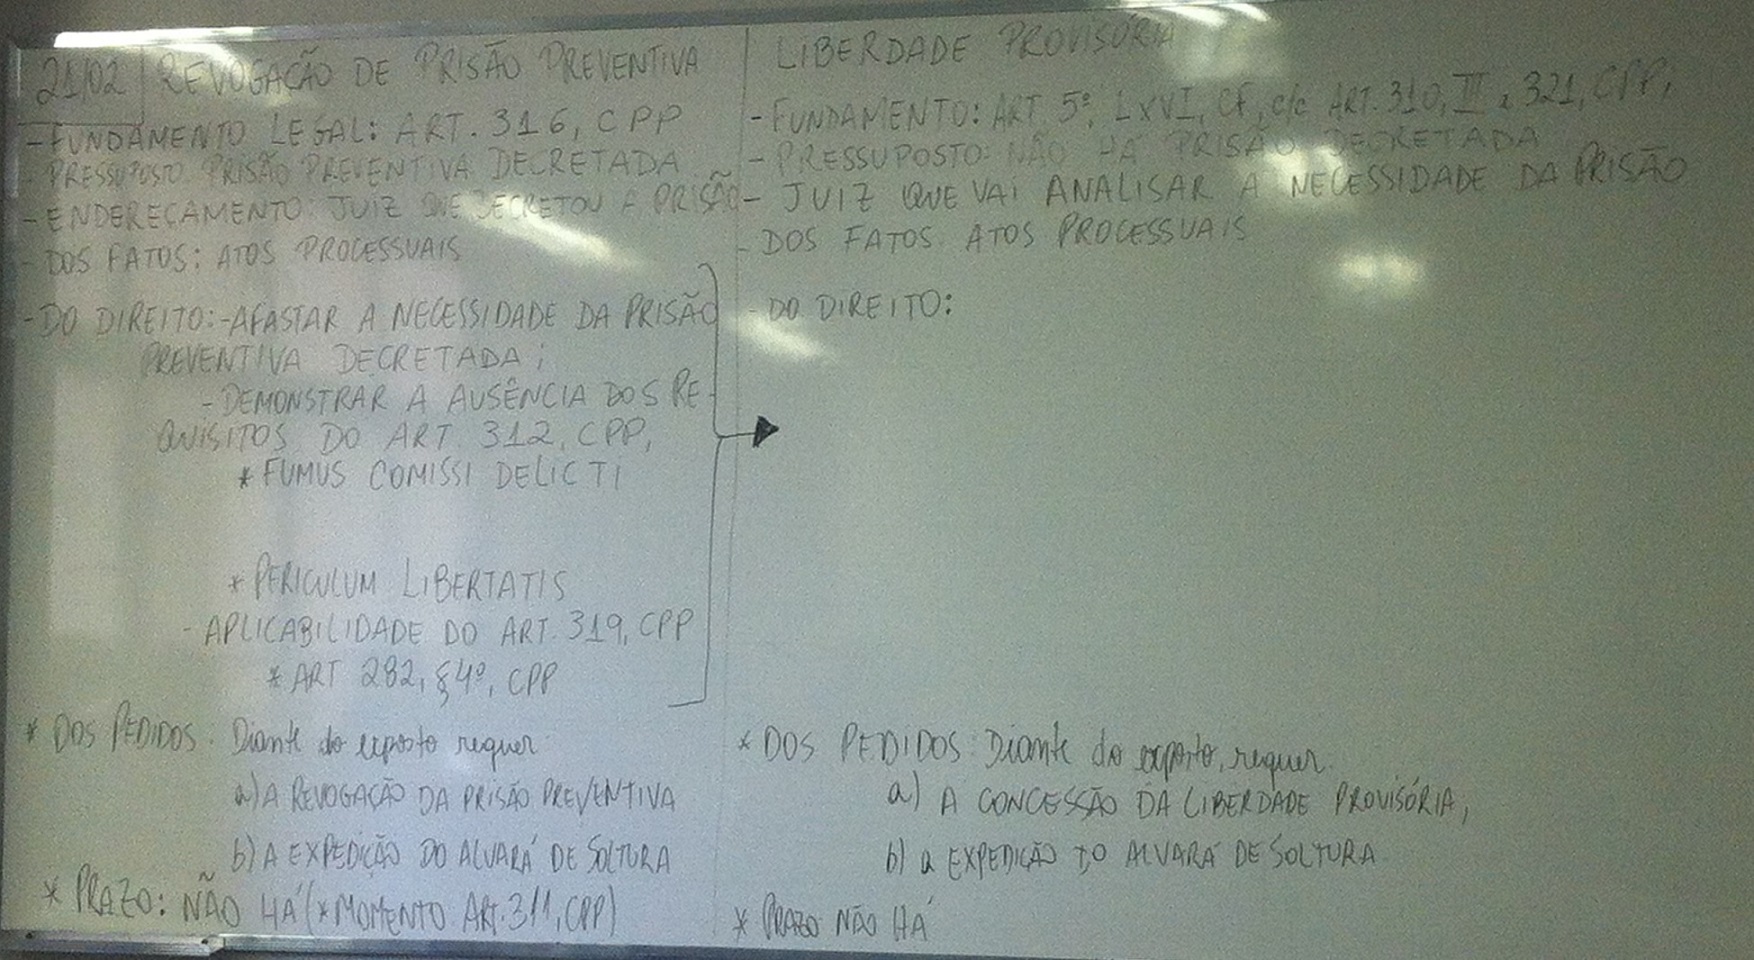 21/02 REVOGAÇÃO DE PRISÃO PREVENTIVA
-FUNDAMENTO LEGAL: ART. 316, CPP
- PRESSUPOSTO: PRISÃO PREVENTIVA DECRETADA
- ENDEREÇAMENTO: JUIZ QUE DECRETOU A PRISÃO
- DOS FATOS: ATOS PROCESSUAIS
- DO DIREITO: - AFASTAR A NECESSIDADE DA PRISÃO
PREVENTIVA DECRETADA;
- DEMONSTRAR A AUSÊNCIA DOS RE-
QUISITOS DO ART. 312, CPP,
* FUMUS COMISSI DELICTI
* PERICULUM LIBERTATIS
- APLICABILIDADE DO ART. 319, CPP
* ART 282, §4º, CPP
* DOS PEDIDOS: Diante do exposto requer:
a) A REVOGAÇÃO DA PRISÃO PREVENTIVA
b) A EXPEDIÇÃO DO ALVARÁ DE SOLTURA
* PRAZO: NÃO HÁ (*MOMENTO ART. 311, CPP)
LIBERDADE PROVISÓRIA
- FUNDAMENTO: ART. 5º, LXVI, CF, c/c ART. 310, III e 321, CPP,
- PRESSUPOSTO: NÃO HÁ PRISÃO DECRETADA
- JUIZ QUE VAI ANALISAR A NECESSIDADE DA PRISÃO
- DOS FATOS: ATOS PROCESSUAIS
- DO DIREITO:
* DOS PEDIDOS: Diante do exposto, requer:
a) A CONCESSÃO DA LIBERDADE PROVISÓRIA,
b) a EXPEDIÇÃO DO ALVARÁ DE SOLTURA
* PRAZO: NÃO HÁ